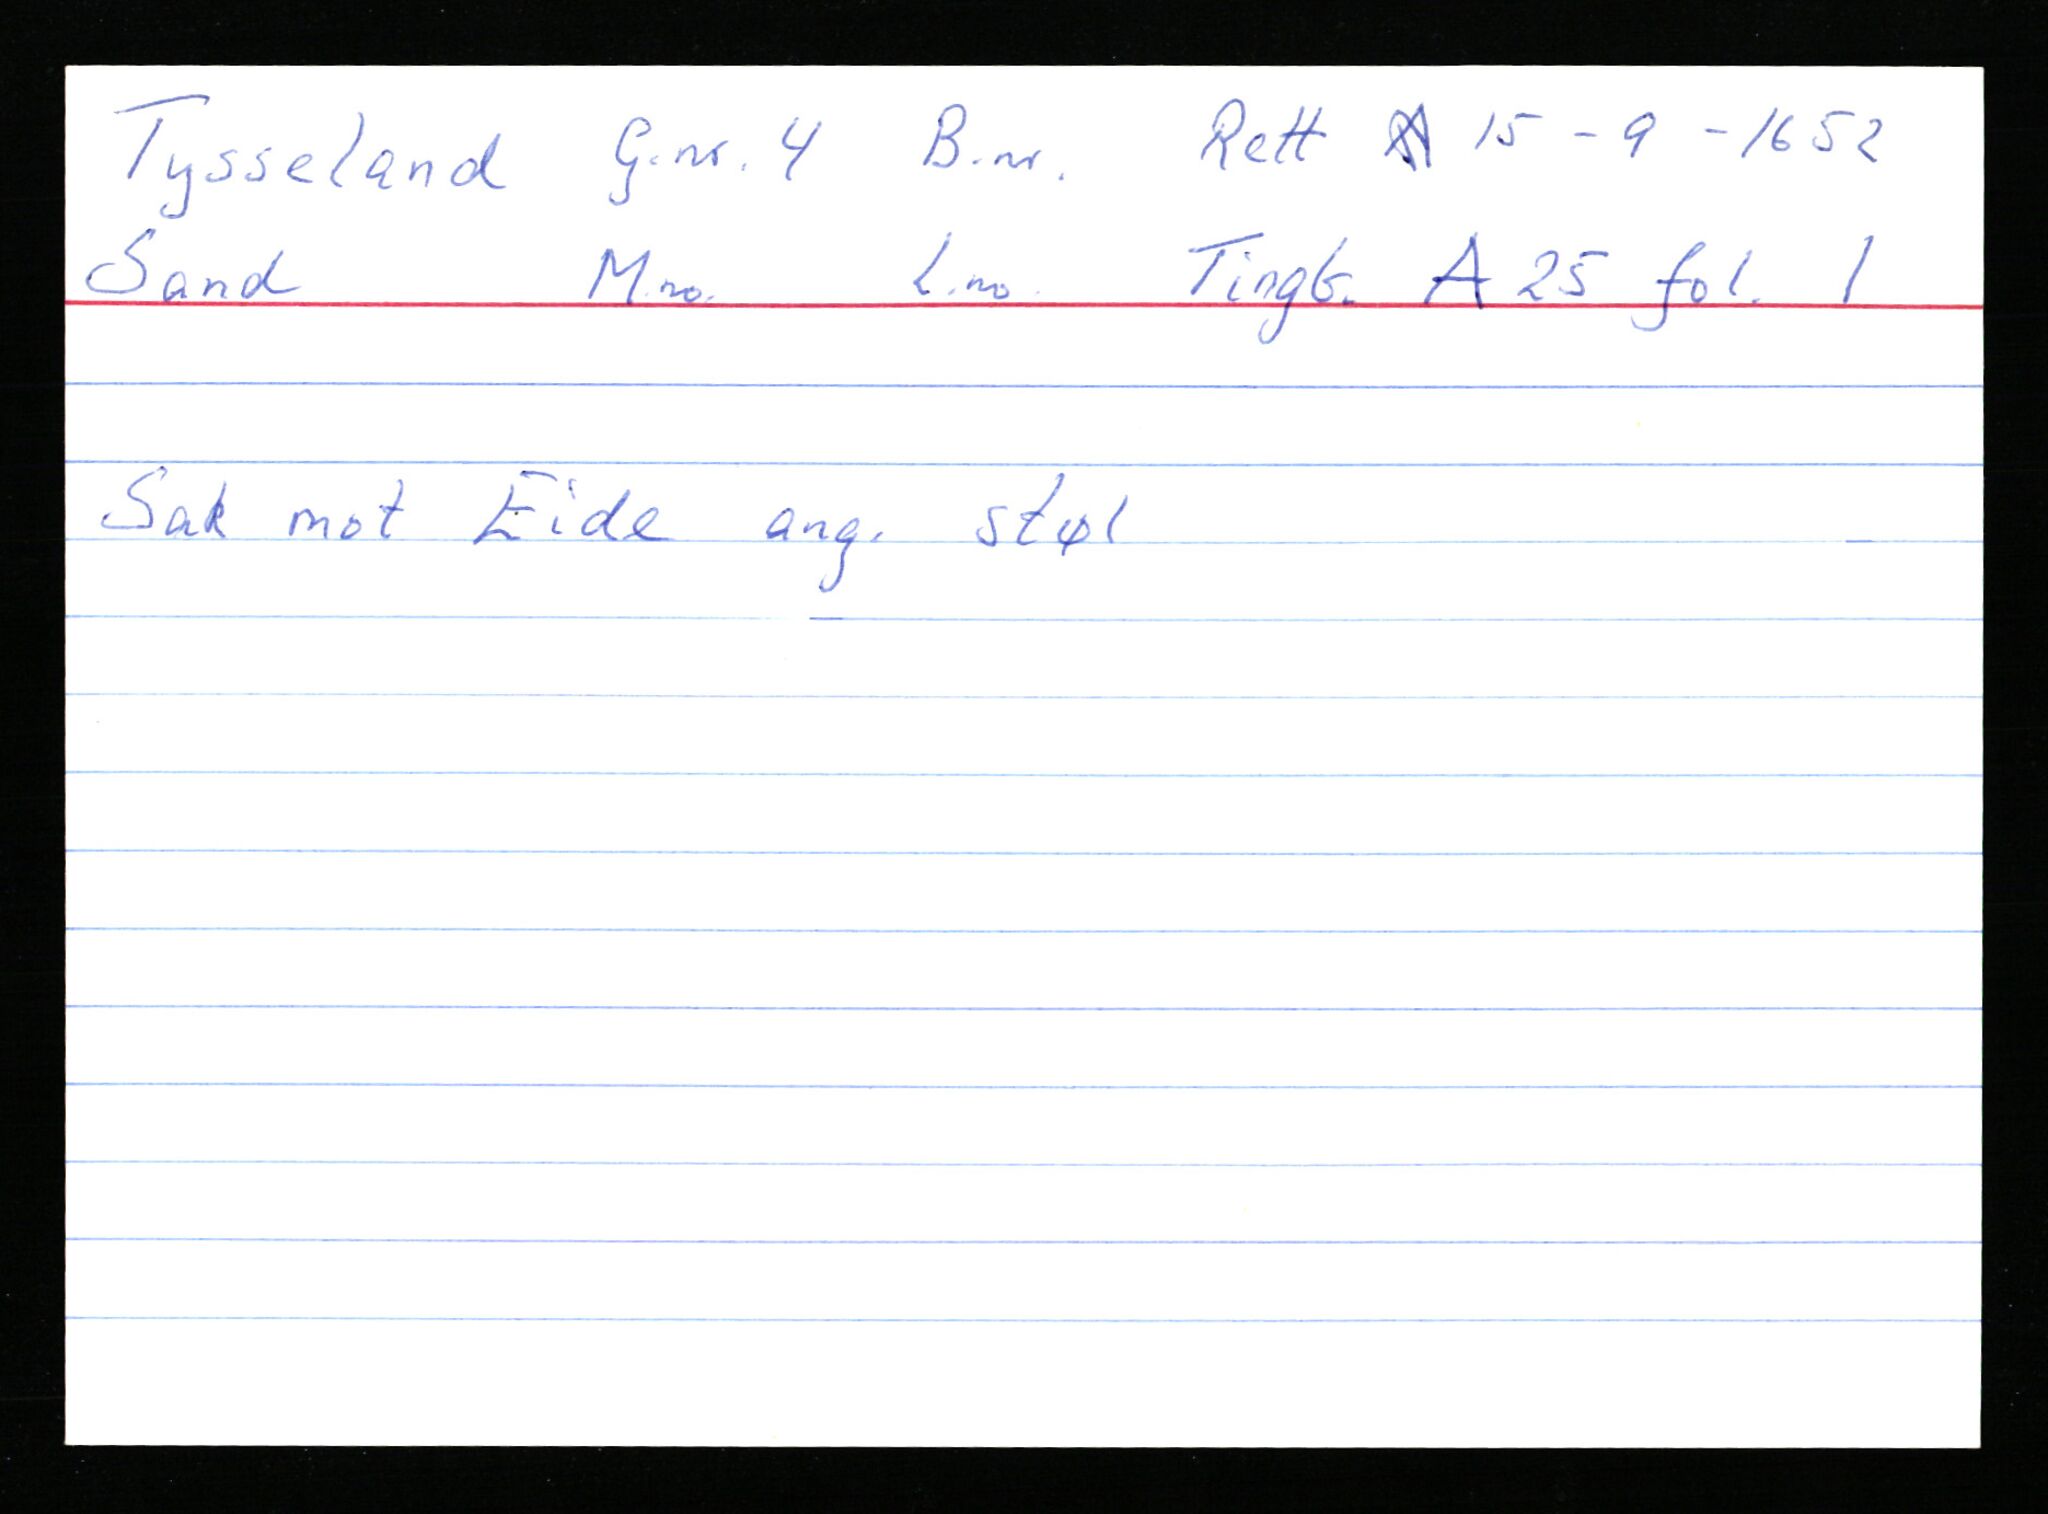 Tysseland G.nr. 4 B.nr. Rett 15 - 9 - 1652
Sand M.no. L.no. Tingb. A 25 fol. 1
Sak mot Eide ang. støl